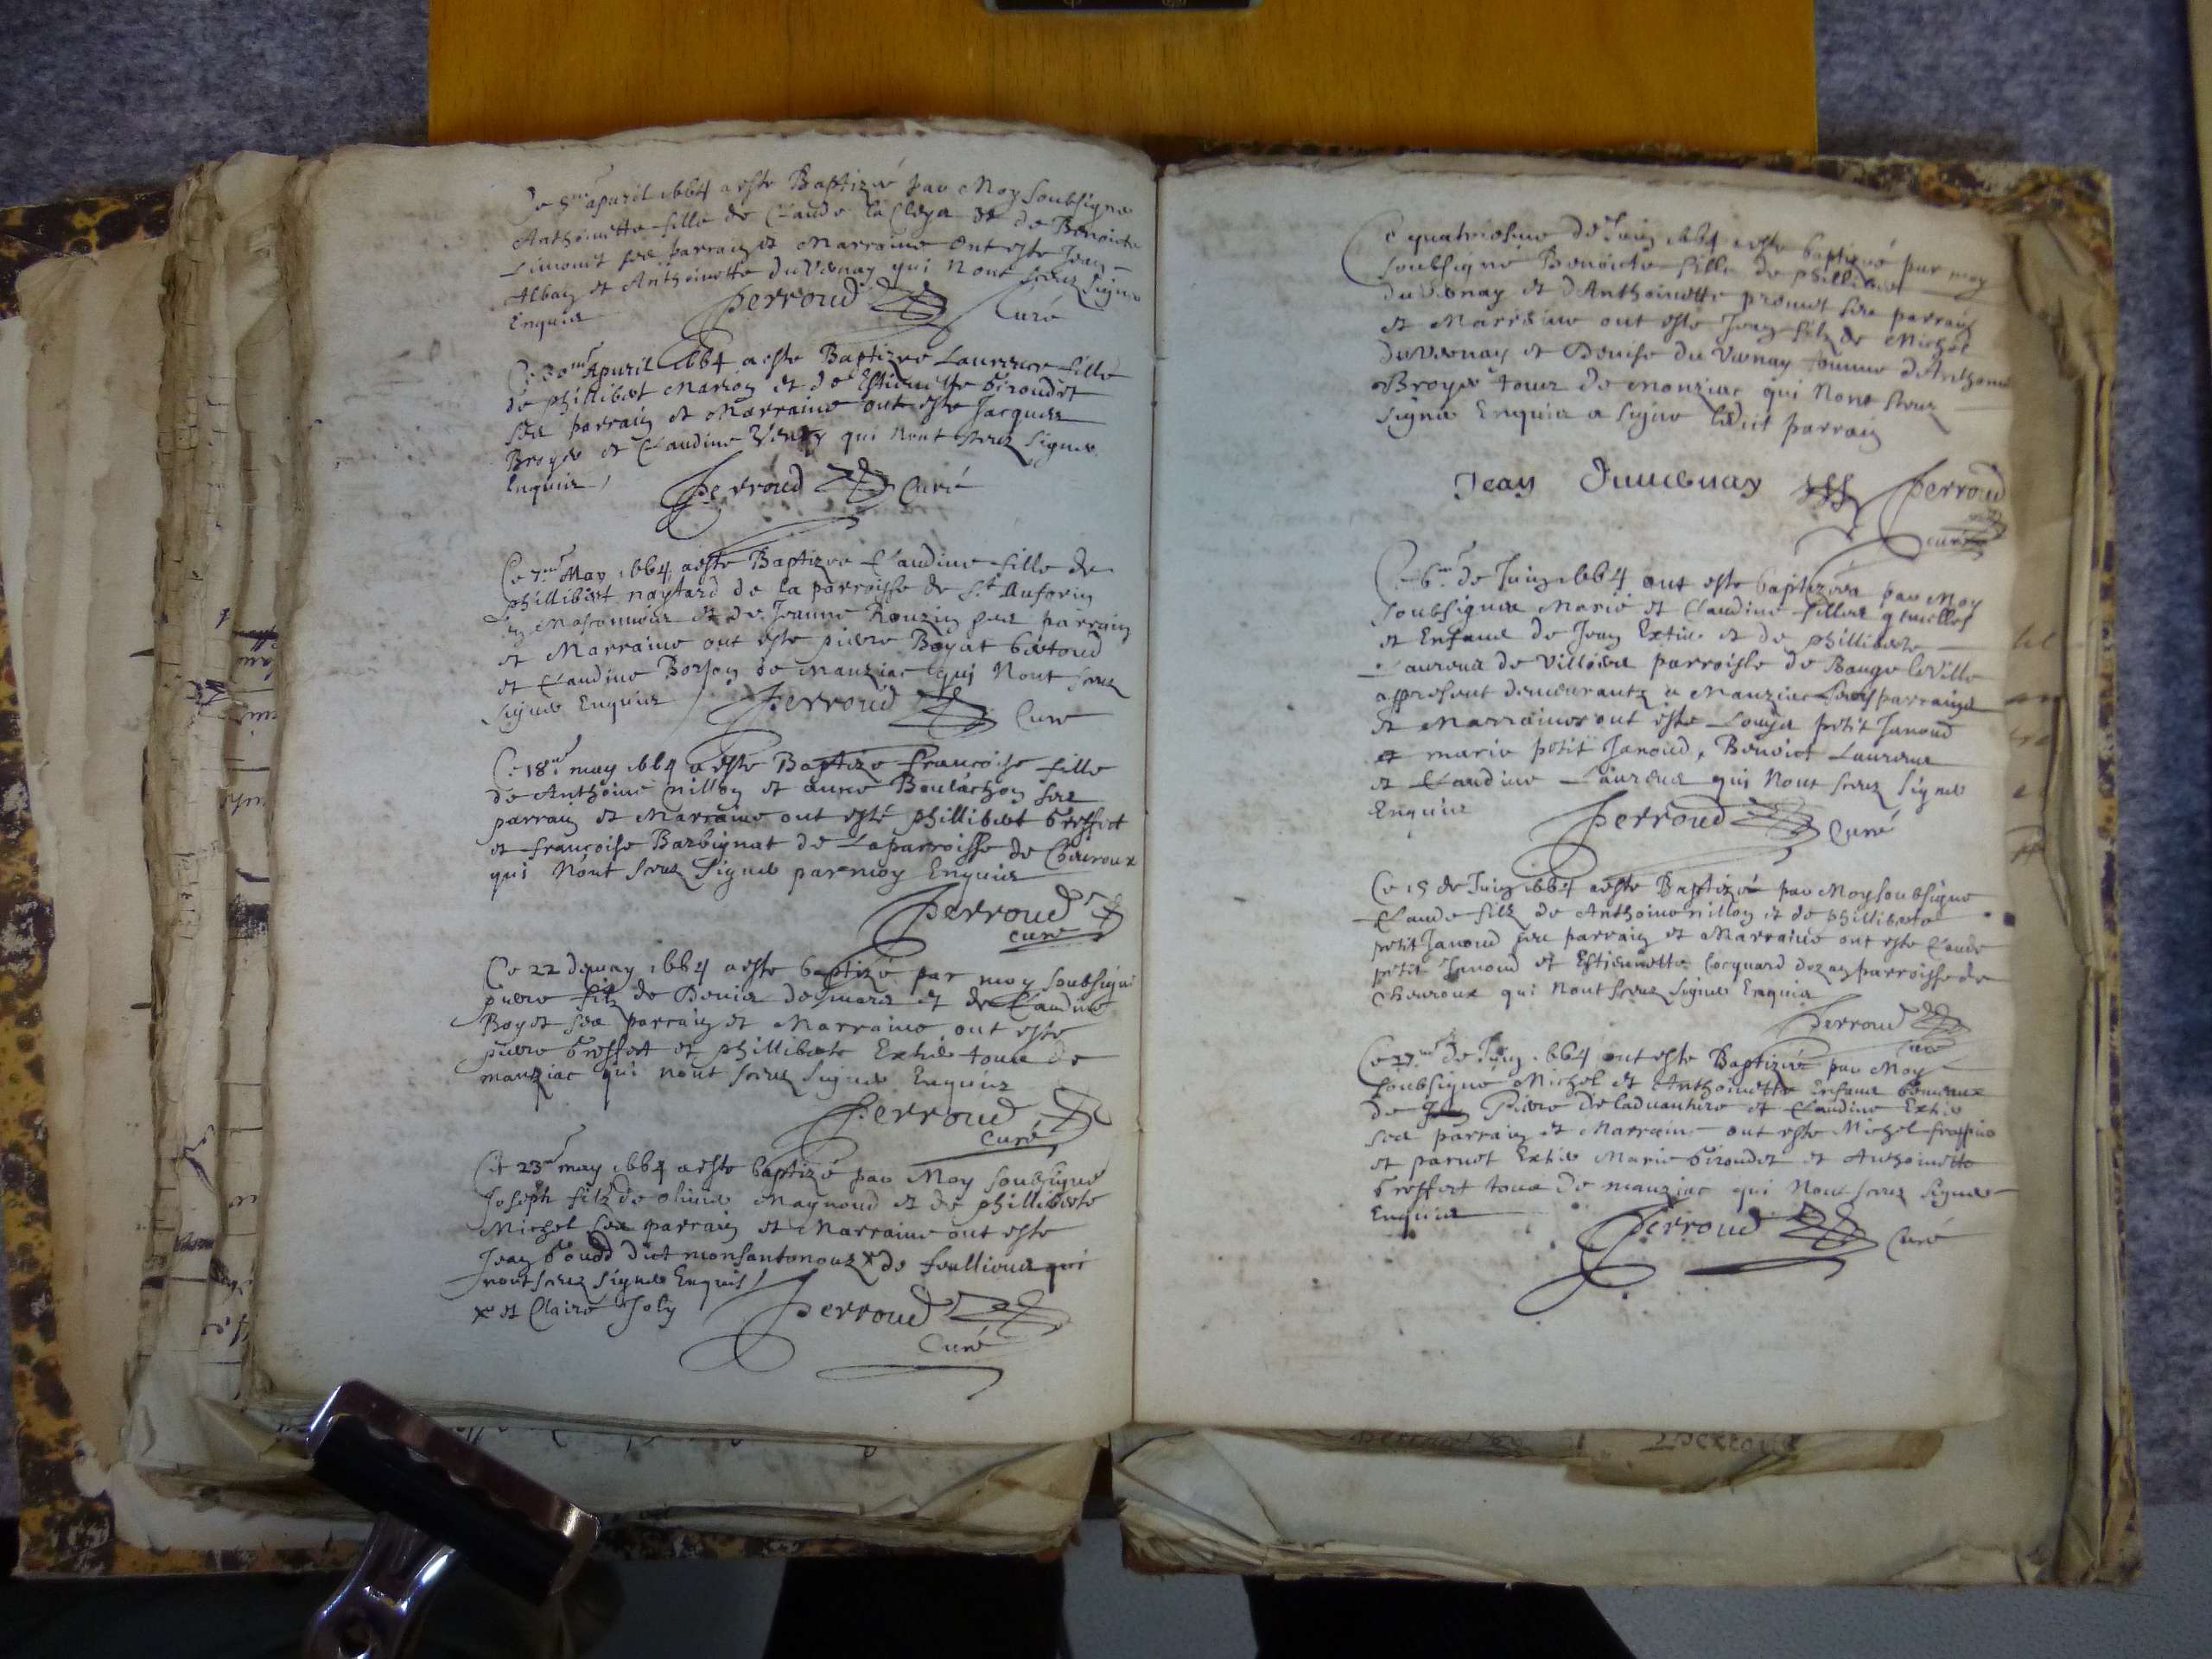 Ce 5me apuril 1664 a este Baptizée par Moy soubsigne
Anthoinette fille de Claude la Cleya et de Benoicte
Limonit ses parrain et Marraine ont este Jean
Alban et Anthoinette duVernay qui Nont sceuz signe
Enquis Perroud Curé
Ce 30me Apuril 1664 a este Baptizée Laurence fille
de phillibert Marron et de Estiennette Giroudet
ses parrain et Marraine ont este Jacques
Broyer et Claudine qui Nont sceuz signer
Enquis Perroud Curé
Ce 7me May 1664 a este Baptizee Claudine fille de
phillibert naytard de la parroisse de St
En Masconnois et de Jeanne Rouzin ses parrain
et Marraine ont este pierre Boyat Bertoud
et Claudine Borjon de Manziac qui Nont sceuz
signer Enquis Perroud Cure
Ce 18me may 1664 a este Baptize francoise fille
de Anthoine nillon et anne Boulachon ses
parrain et Marraine ont esté phillibert Greffet
et francoise Barbignat de Laparroisse de Cheuroux
qui Nont sceuz signer par moy Enquis
Perroud
cure
Ce 22 de may 1664 a este baptizé par moy soubsigné
pierre filz de Denis desmars et de Claudine
Boyet ses parrain et Marraine ont este
pierre Greffet et philliberte Extier tous de
manziac qui nont sceuz signer Enquis
Perroud
Curé
Ce 23me may 1664 a este baptizé par Moy soubsigne
Joseph filz de oliuier Maynoud et de phillibeste
Michel ses parrain et Marraine ont este
Jean Goudd dict monsantonoux x de feullieux qui
nont sceuz signer Enquis
x et Claire Joly Perroud
Curé
Ce quatriesme de Juin 1664 a este baptizée par moy
soubsigné Benoicte fille de phillibert
duVernay et dAnthoinette promet ses parrain
et Marraine ont este Jean filz de Michel
duVernay et Denise du Vernay femme dAnthoine
Broyer tous de Monziac qui Nont sceuz
signer Enquis a signe ledit parrain
Jean Duuernay Perroud
curé
Ce 6me de Juin 1664 ont este baptizées par Moy
soubsigne Marie et Claudine filles gemelles
et Enfans de Jean Extier et de phillibeste
Laurens de Villosse parroisse de Bauge la Ville
appresent demeurantz a Manziac Leurs parrains
et Marraines ont este Louys petit Janoud
et marie petit Janoud, Benoict Laurens
et Claudine Laurens qui Nont sceuz signer
Enquis Perroud Curé
Ce 15 de Juin 1664 a este Baptizé par Moy soubsigne
Claude filz de Anthoine nillon et de phillibeste
petit Janoud ses parrain et Marraine ont este Claude
petit Janoud et Estiennette Cocquard dezan parroisse de
Cheuroux qui Nont sceuz signer Enquis
Perroud
Cure
Ce 27me de Juin 1664 ont este Baptizée par Moy
soubsigné Michel et Anthoinette Enfans Gemeaux
de Pierre Deladuanture et Claudine Extier
ses parrain et Marraine ont este Michel
et pernet Extier Marie Giroudet et Anthoinette
Greffet tous de manziac qui Nont sceuz signer
Enquis Perroud Curé